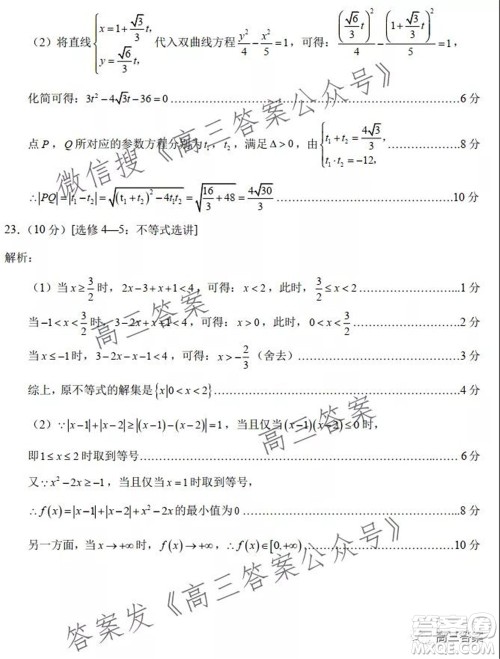 （2）将直线{x=1+(√3/3)t, y=(√6/3)t, 代入双曲线方程 y²/4-x²/5=1，可得：((√6/3)t)²/4-(1+(√3/3)t)²/5=1，
化简可得：3t²-4√3t-36=0……6分
点 P，Q 所对应的参数方程分别为t₁，t₂，满足Δ>0，由{t₁+t₂=4√3/3, t₁·t₂=-12,……8分
∴|PQ|=|t₁-t₂|=√((t₁+t₂)²-4t₁t₂)=√(16/3+48)=4√30/3……10分
23.（10分）[选修 4—5：不等式选讲]
解析：
（1）当 x≥3/2 时，2x-3+x+1<4，可得：x<2，此时，3/2≤x<2……1分
当 -1<x<3/2 时，3-2x+x+1<4，可得：x>0，此时，0<x<3/2……2分
当 x≤-1 时，3-2x-x-1<4，可得：x>-2/3（舍去）……3分
综上，原不等式的解集是{x|0<x<2}……4分
（2）∵|x-1|+|x-2|≥|(x-1)-(x-2)|=1，当且仅当(x-1)(x-2)≤0时，
即1≤x≤2时取到等号……6分
又∵x²-2x≥-1，当且仅当x=1时取到等号，
∴f(x)=|x-1|+|x-2|+x²-2x的最小值为0……8分
另一方面，当x→+∞时，f(x)→+∞，∴f(x)∈[0,+∞)……10分
微信搜《高三答案公众号》
高三答案
高三答案
答案发《高三答案公众号》
高三答案